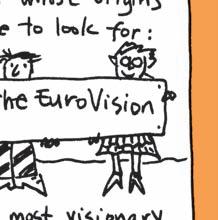 whose origins
e to look for:
the EuroVision
most visionary